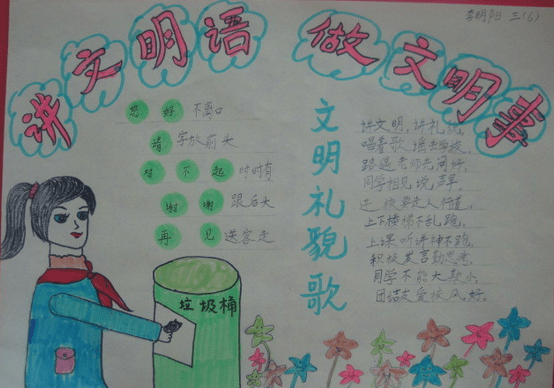 讲文明语 做文明事
李明阳 三(6)
您好不离口
请字放前头
对不起时时有
谢谢跟后头
再见送客走
文明礼貌歌
讲文明,讲礼貌,
唱着歌,去学校,
路遇老师先问好,
同学相见说声早,
进校要走人行道,
上下楼梯不乱跑,
上课听讲神不跑,
积极发言勤思考,
同学不能大欺小,
团结友爱校风好.
垃圾桶